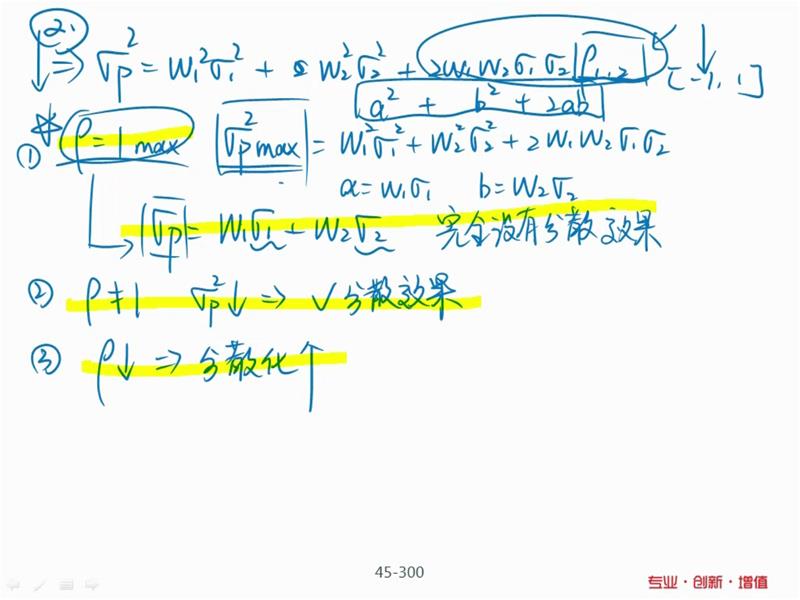 2. ⇒ σp² = w₁²σ₁² + w₂²σ₂² + 2w₁w₂σ₁σ₂ρ₁,₂ [-1, 1]
a² + b² + 2ab
① ρ = 1 max σp² max = w₁²σ₁² + w₂²σ₂² + 2w₁w₂σ₁σ₂
a = w₁σ₁ b = w₂σ₂
σp = w₁σ₁ + w₂σ₂ 完全没有分散效果
② ρ ≠ 1 σp² ↓ ⇒ √分散效果
③ ρ↓ ⇒ 分散化↑
45-300
专业·创新·增值